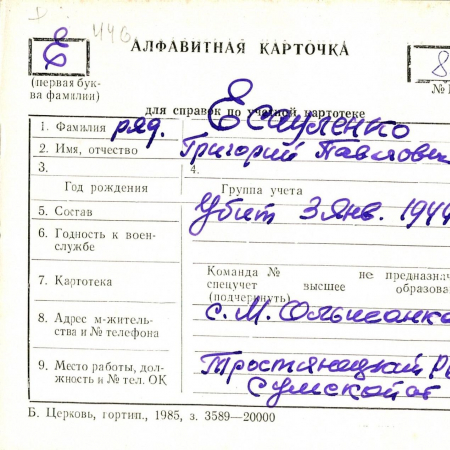 446
Е
АЛФАВИТНАЯ КАРТОЧКА
8
(первая бук-
ва фамилии)
№
для справок по учетной картотеке
1. Фамилия ряд. Есауленко
2. Имя, отчество Григорий Павлович
3. 4.
Год рождения Группа учета
5. Состав Убит 3 янв. 1944
6. Годность к воен-
службе
Команда № не предназнач
7. Картотека спецучет высшее образова
(подчеркнуть)
8. Адрес м-житель- с. М.
ства и № телефона
9. Место работы, дол- Тростянецкий Р
жность и № тел. ОК Сумской об
Б. Церковь, гортип., 1985, з. 3589—20000